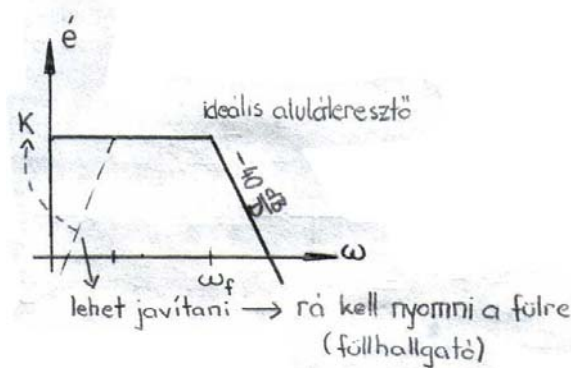 é
ideális aluláteresztő
K
-40 dB/D
ω
ω_f
lehet javítani → rá kell nyomni a fülre
(füllhallgató)